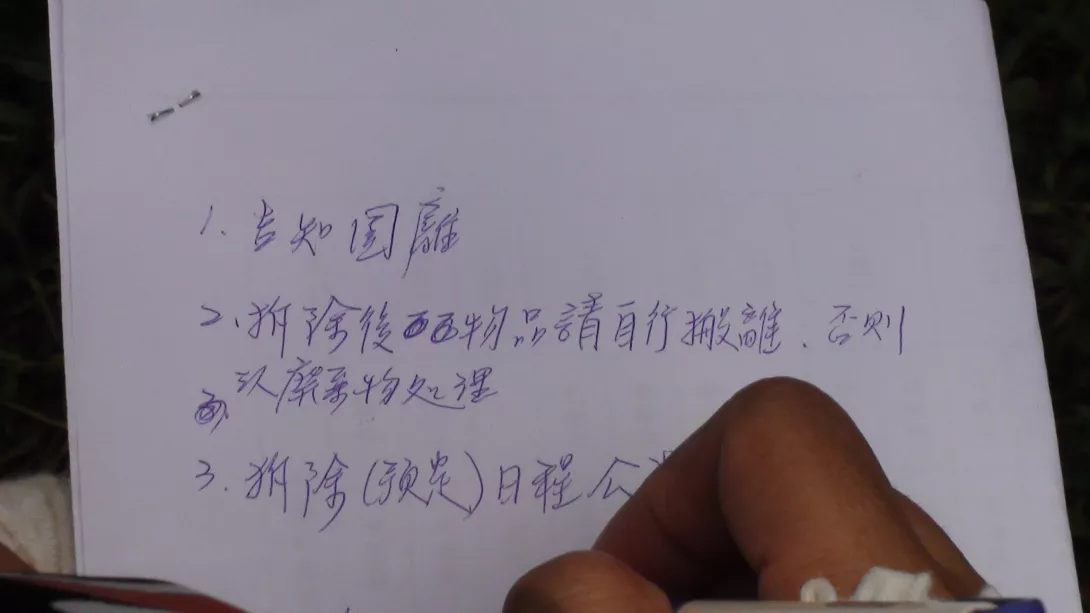 1. 告知圍離
2. 拆除後物品請自行搬離、否則
以廢棄物處理
3. 拆除(預定)日程公